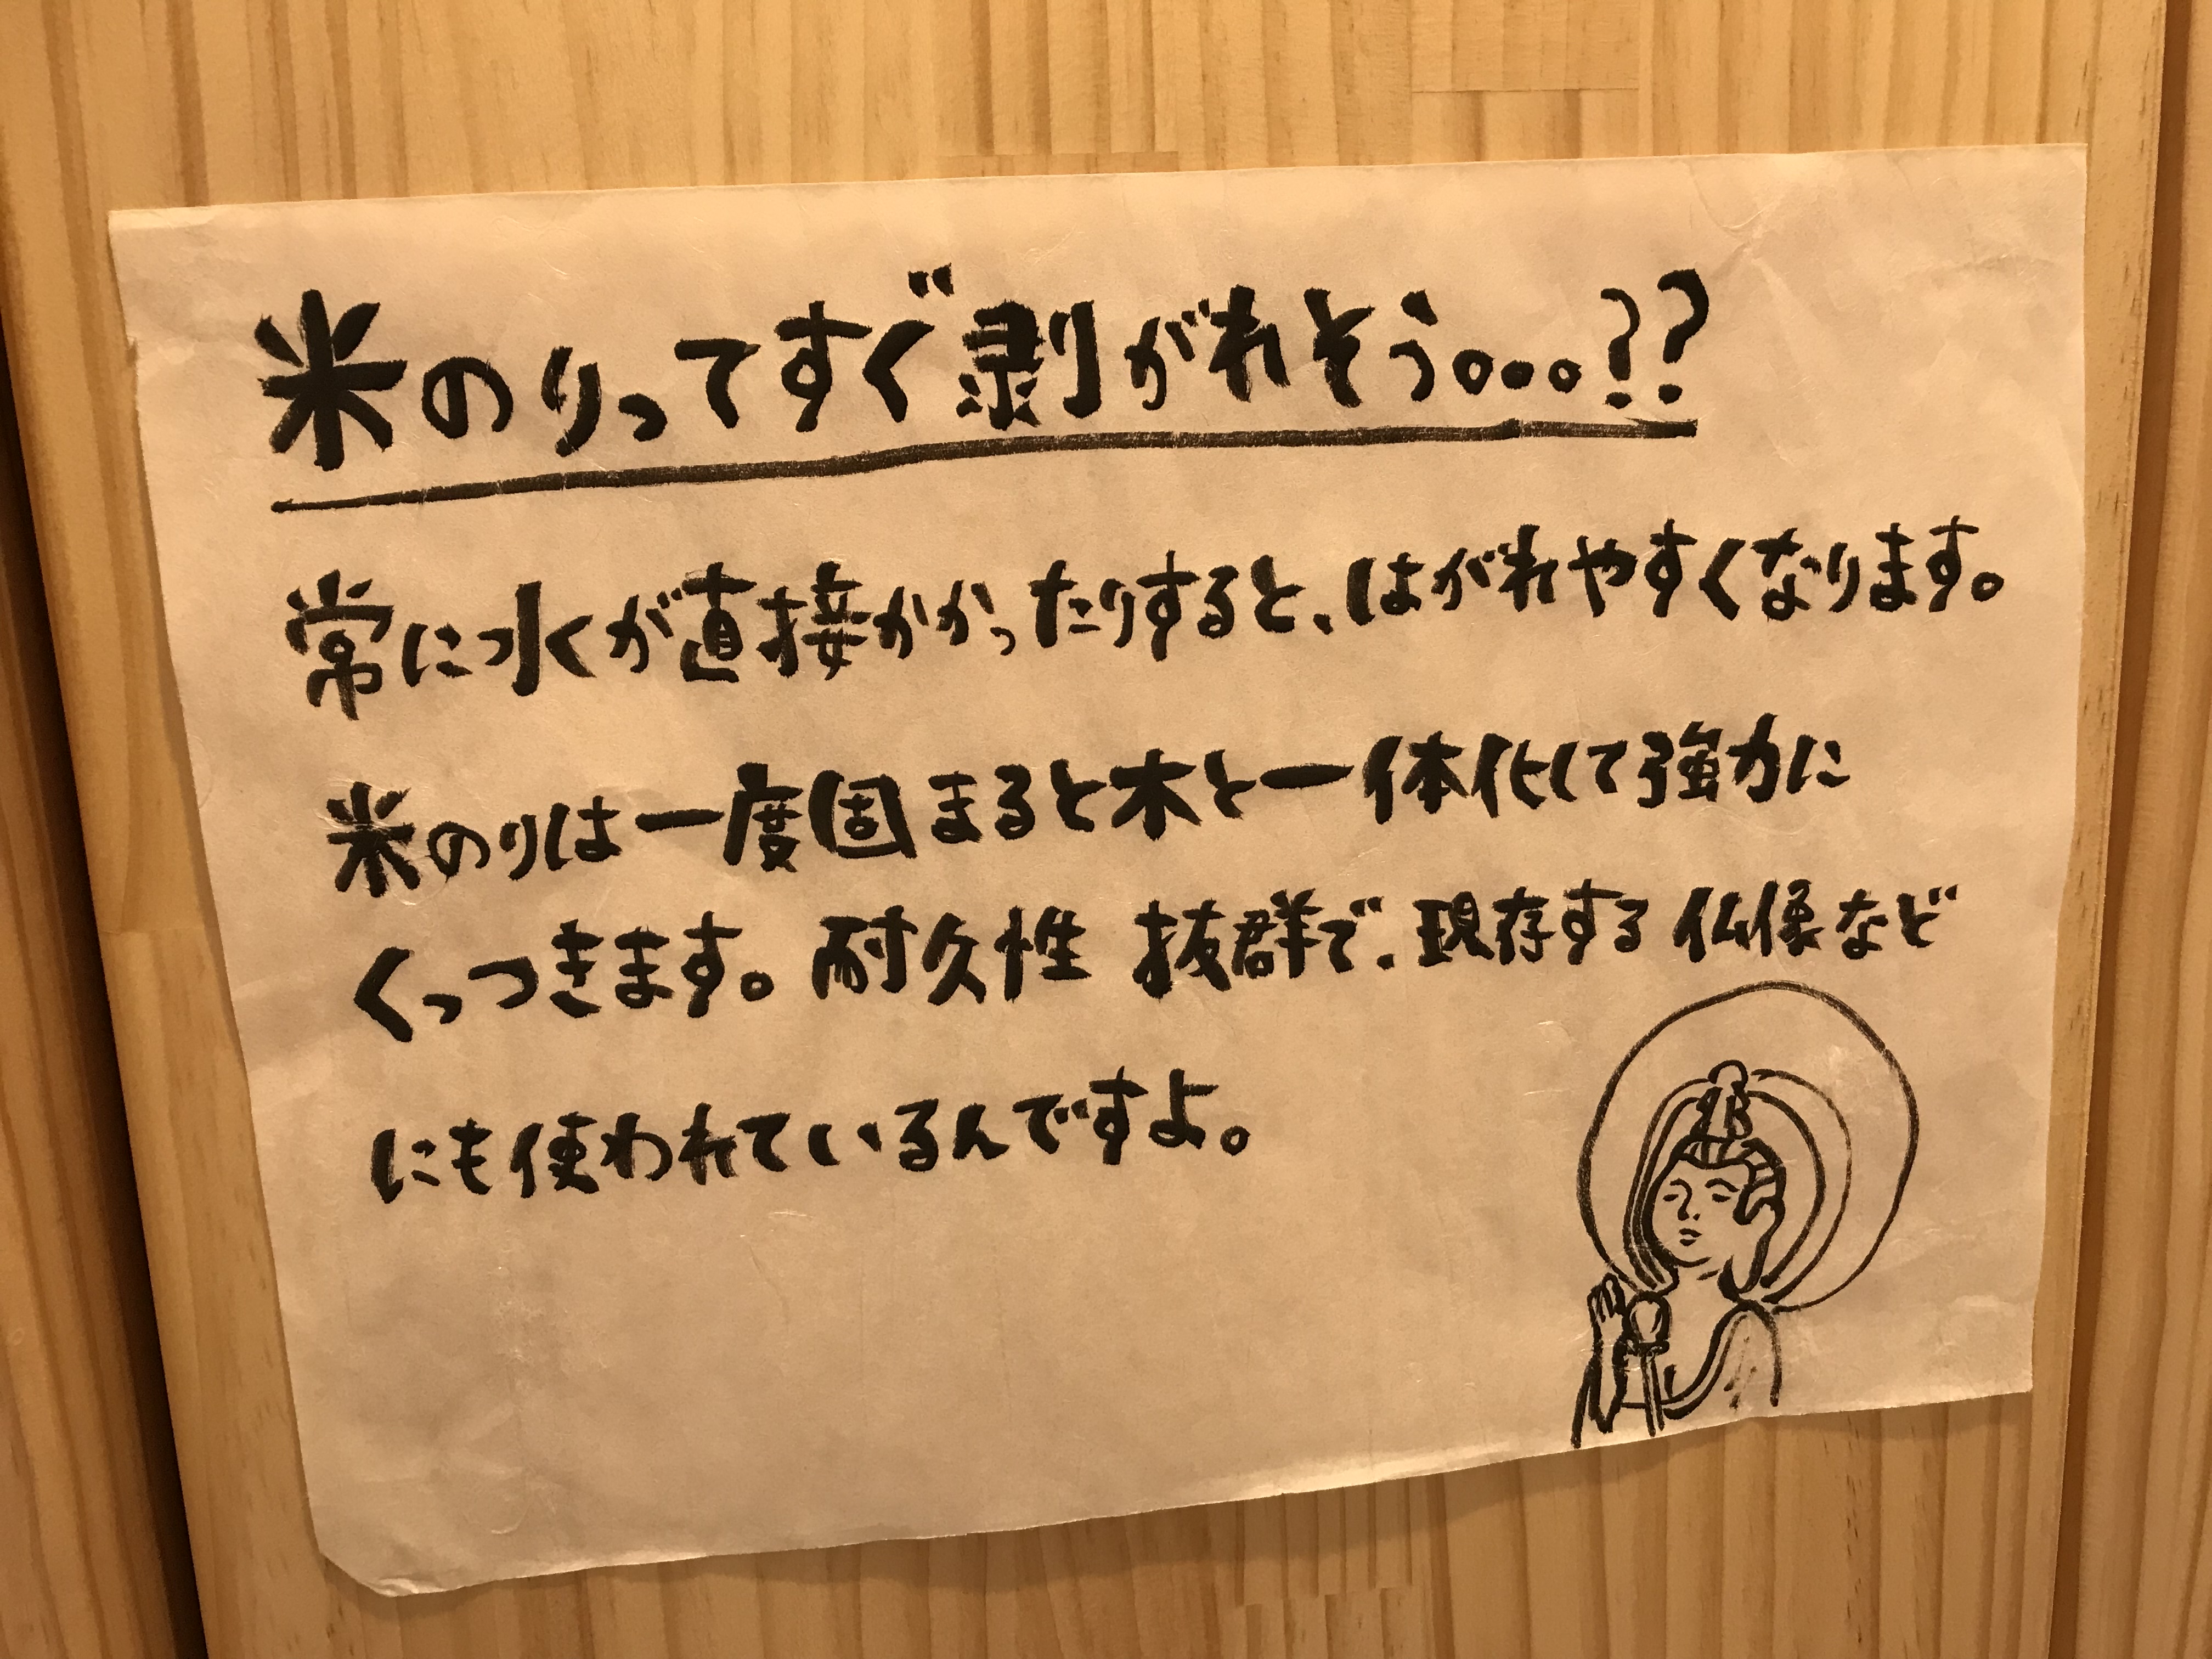 米のりってすぐ剥がれそう。。。??
常に水が直接かかったりすると、はがれやすくなります。
米のりは一度固まると木と一体化して強力に
くっつきます。耐久性 抜群で、現存する仏像など
にも使われているんですよ。